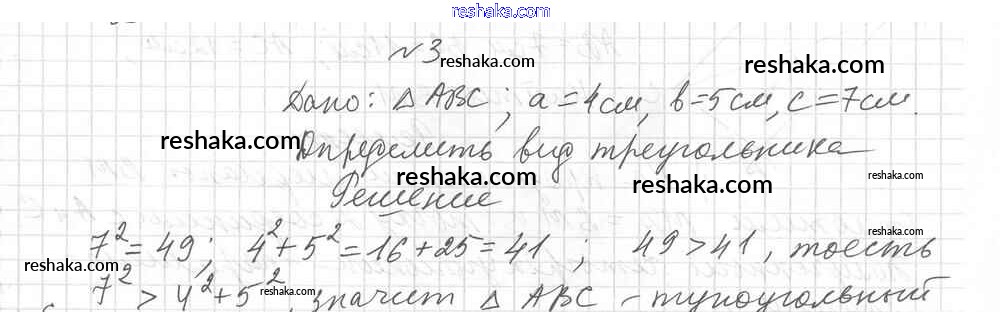 reshaka.com
№3
reshaka.com
reshaka.com
Дано: △ ABC; a=4см, b=5см, c=7см.
reshaka.com
Определить вид треугольника
reshaka.com
reshaka.com
reshaka.com
Решение
7²=49; 4²+5²=16+25=41; 49>41, тоесть
reshaka.com
reshaka.com
7²>4²+5², значит △ ABC - тупоугольный
reshaka.com